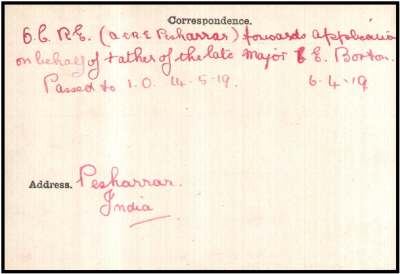 Correspondence.
G.C. R.E. (A.C.R.E Pesharrar) forwards application
on behalf of Father of the late Major C E. Borton.
Passed to I.O. 14-5-19. 6-4-19
Address. Pesharrar.
India